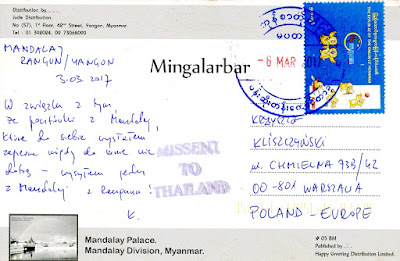 Distribution by......
Jude Distribution.
No (57), 1st Floor, 42nd Street, Yangon, Myanmar.
MANDALAY
RANGUN/YANGON
3.03.2017
Mingalarbar
- 6 MAR 2017
W związku z tym
że pocztówki z Mandalay,
które do siebie wysłałem
zapewne nigdy do mnie nie
dotrą – wysyłam jedną
z "Mandalay" z Rangunu!
K.
MISSENT
TO
THAILAND
KRZYSZTOF
KLISZCZYŃSKI
ul. CHMIELNA 73B/42
00-801 WARSZAWA
POLAND - EUROPE
Mandalay Palace.
Mandalay Division, Myanmar.
# 05 BM
Published by.....
Happy Greeting Distribution Limited